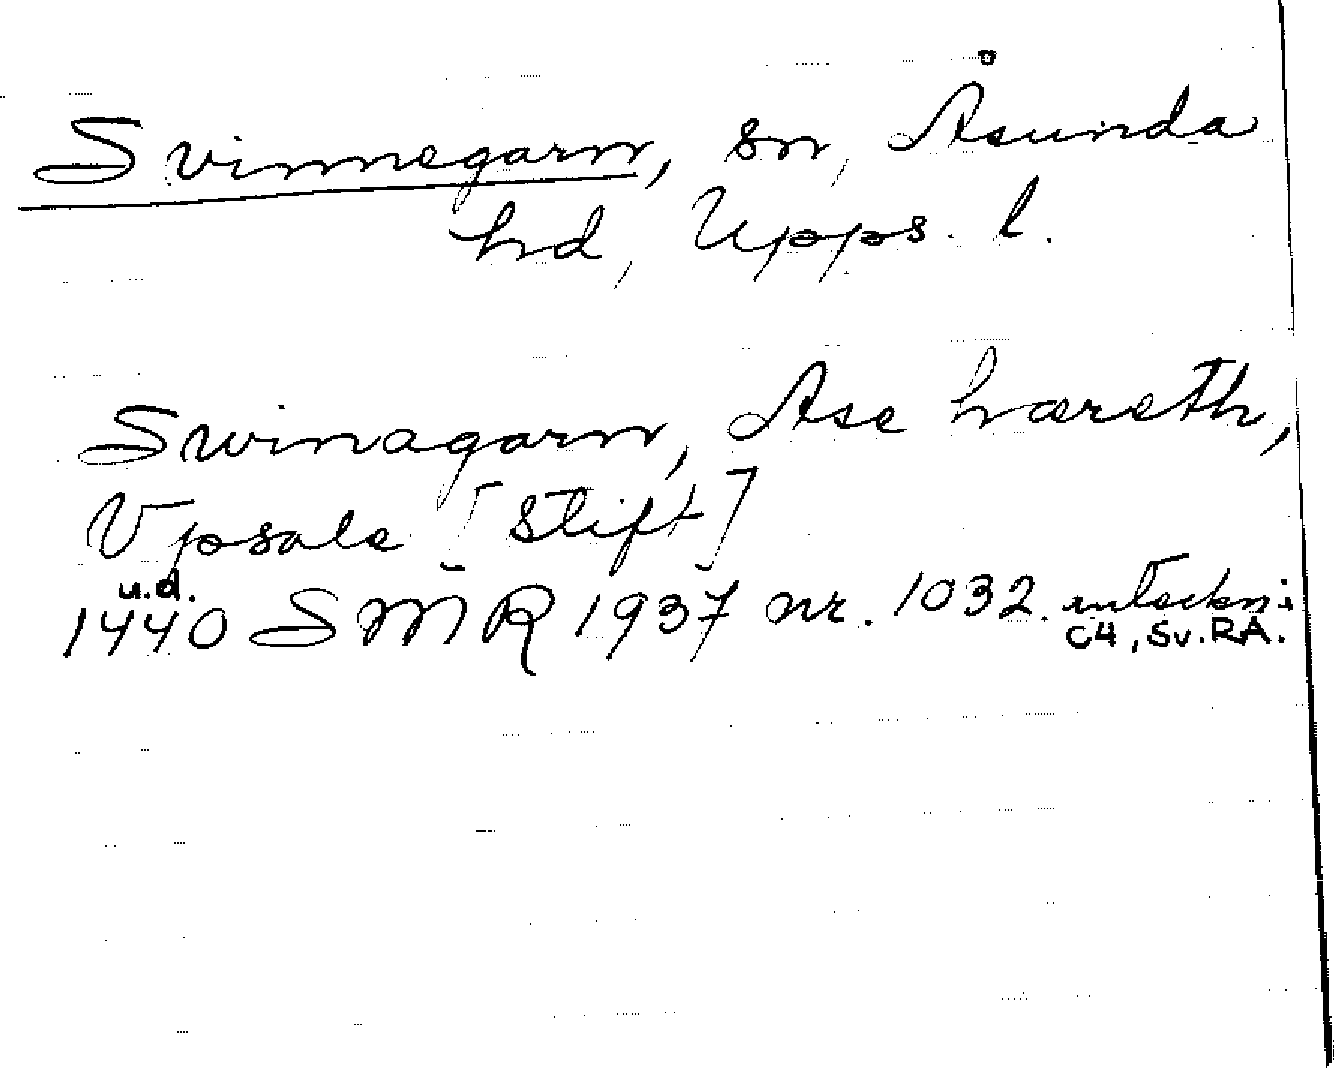 Svinnegarn, sn, Åsunda
hd, Upps. l.
Swinagarn, Ase hæreth,
Vpsale [Stift]
u.d.
1440 SMR 1937 nr. 1032. anteckn. i
C4, Sv. RA.